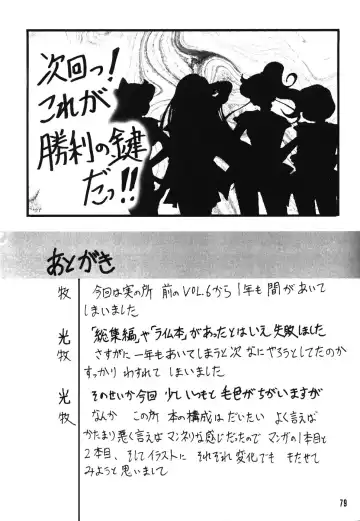 次回っ!
これが
勝利の鍵
だっ!!
あとがき
牧 今回は実の所 前のVOL.6から1年も間があいて
しまいました
光 「総集編」や「ライム本」があったとはいえ失敗しました
牧 さすがに一年もおいてしまうと次なにやろうとしてたのか
すっかりわすれてしまいました
光 そのせいか今回少しいつもと毛色がちがいますが
牧 なんか この所 本の構成はだいたい よく言えば
かたまり悪く言えばマンネリな感じだったのでマンガの1本目と
2本目、そしてイラストに それぞれ変化でも もたせて
みようと思いまして
79